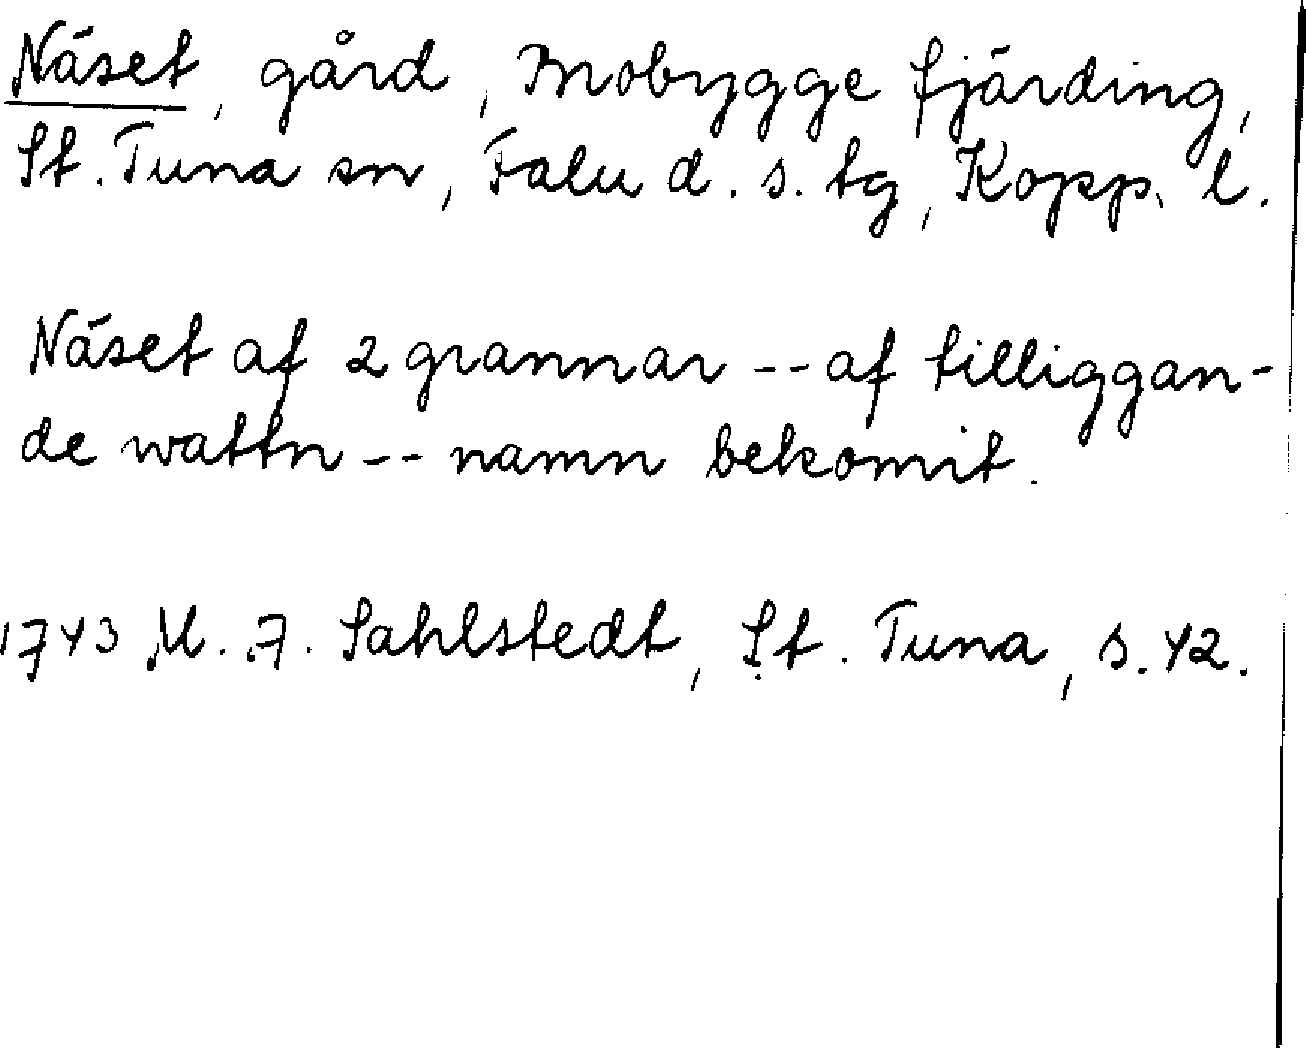 Näset, gård, Mobygge fjärding,
St. Tuna sn, Falu d. s. tg, Kopp. l.
Näset af 2 grannar -- af tilliggan-
de wattn -- namn bekomit.
1743 M. 7. Sahlstedt, St. Tuna, s. 42.